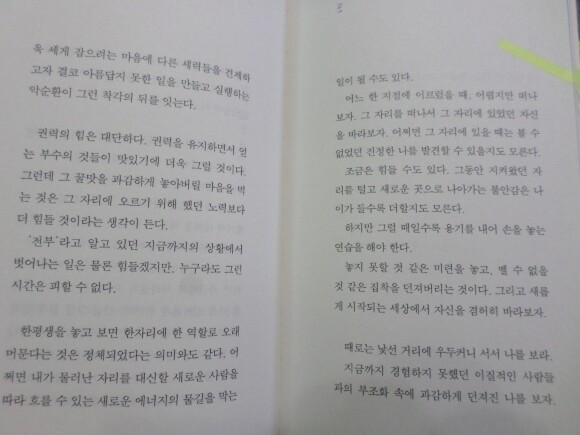 욱 세게 잡으려는 마음에 다른 세력들을 견제하
고자 결코 아름답지 못한 일을 만들고 실행하는
악순환이 그런 착각의 뒤를 잇는다.
권력의 힘은 대단하다. 권력을 유지하면서 얻
는 부수의 것들이 맛있기에 더욱 그럴 것이다.
그런데 그 꿀맛을 과감하게 놓아버릴 마음을 먹
는 것은 그 자리에 오르기 위해 했던 노력보다
더 힘들 것이라는 생각이 든다.
'전부'라고 알고 있던 지금까지의 상황에서
벗어나는 일은 물론 힘들겠지만. 누구라도 그런
시간은 피할 수 없다.
한평생을 놓고 보면 한자리에 한 역할로 오래
머문다는 것은 정체되었다는 의미와도 같다. 어
쩌면 내가 물러난 자리를 대신할 새로운 사람을
따라 흐를 수 있는 새로운 에너지의 물길을 막는
일이 될 수도 있다.
어느 한 지점에 이르렀을 때, 어렵지만 떠나
보자. 그 자리를 떠나서 그 자리에 있었던 자신
을 바라보자. 어쩌면 그 자리에 있을 때는 볼 수
없었던 진정한 나를 발견할 수 있을지도 모른다.
조금은 힘들 수도 있다. 그동안 지켜왔던 자
리를 털고 새로운 곳으로 나아가는 불안감은 나
이가 들수록 더할지도 모른다.
하지만 그럴 때일수록 용기를 내어 손을 놓는
연습을 해야 한다.
놓지 못할 것 같은 미련을 놓고, 뗄 수 없을
것 같은 집착을 던져버리는 것이다. 그리고 새롭
게 시작되는 세상에서 자신을 겸허히 바라보자.
때로는 낯선 거리에 우두커니 서서 나를 보라.
지금까지 경험하지 못했던 이질적인 사람들
과의 부조화 속에 과감하게 던져진 나를 보자.